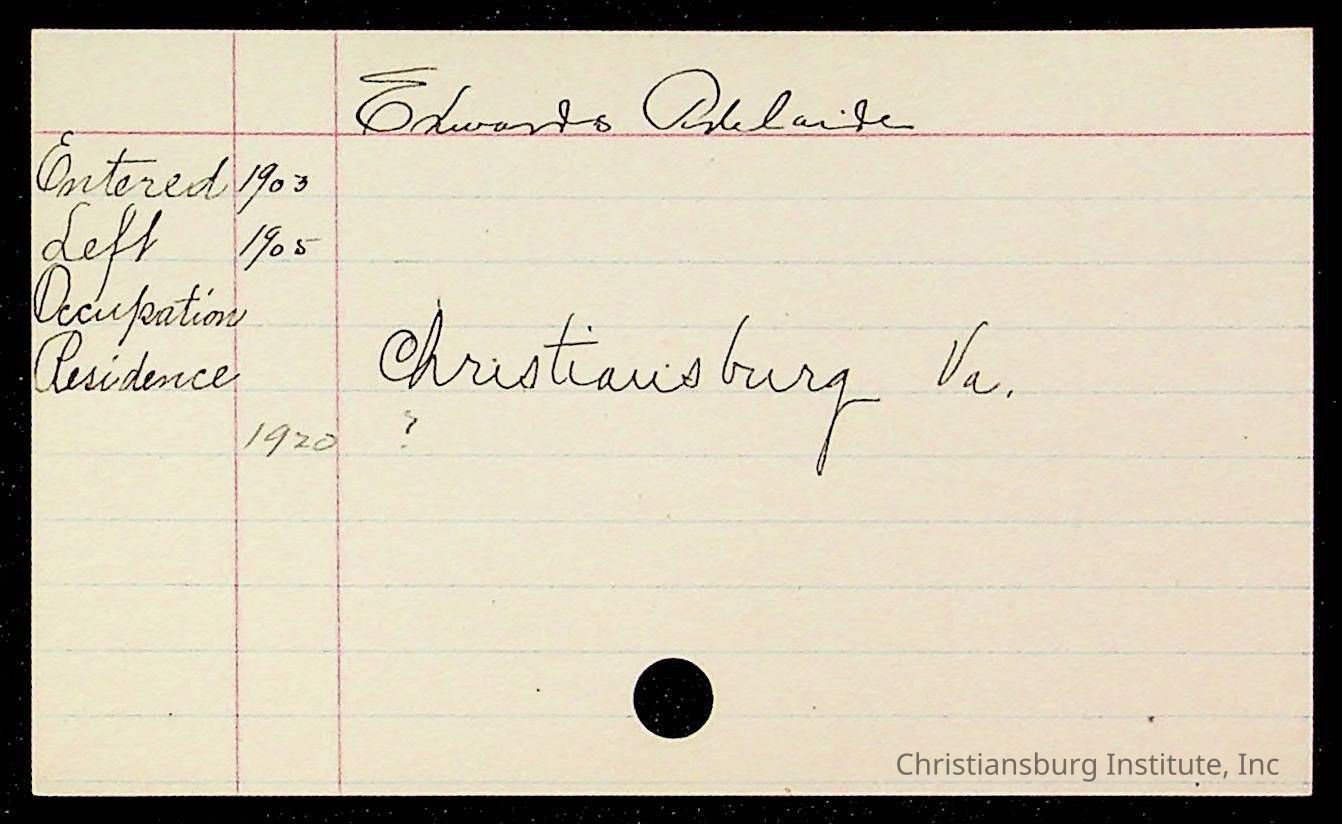 Edwards Adelaide
Entered 1903
Left 1905
Occupation
Residence Christiansburg Va.
1920 ?
Christiansburg Institute, Inc